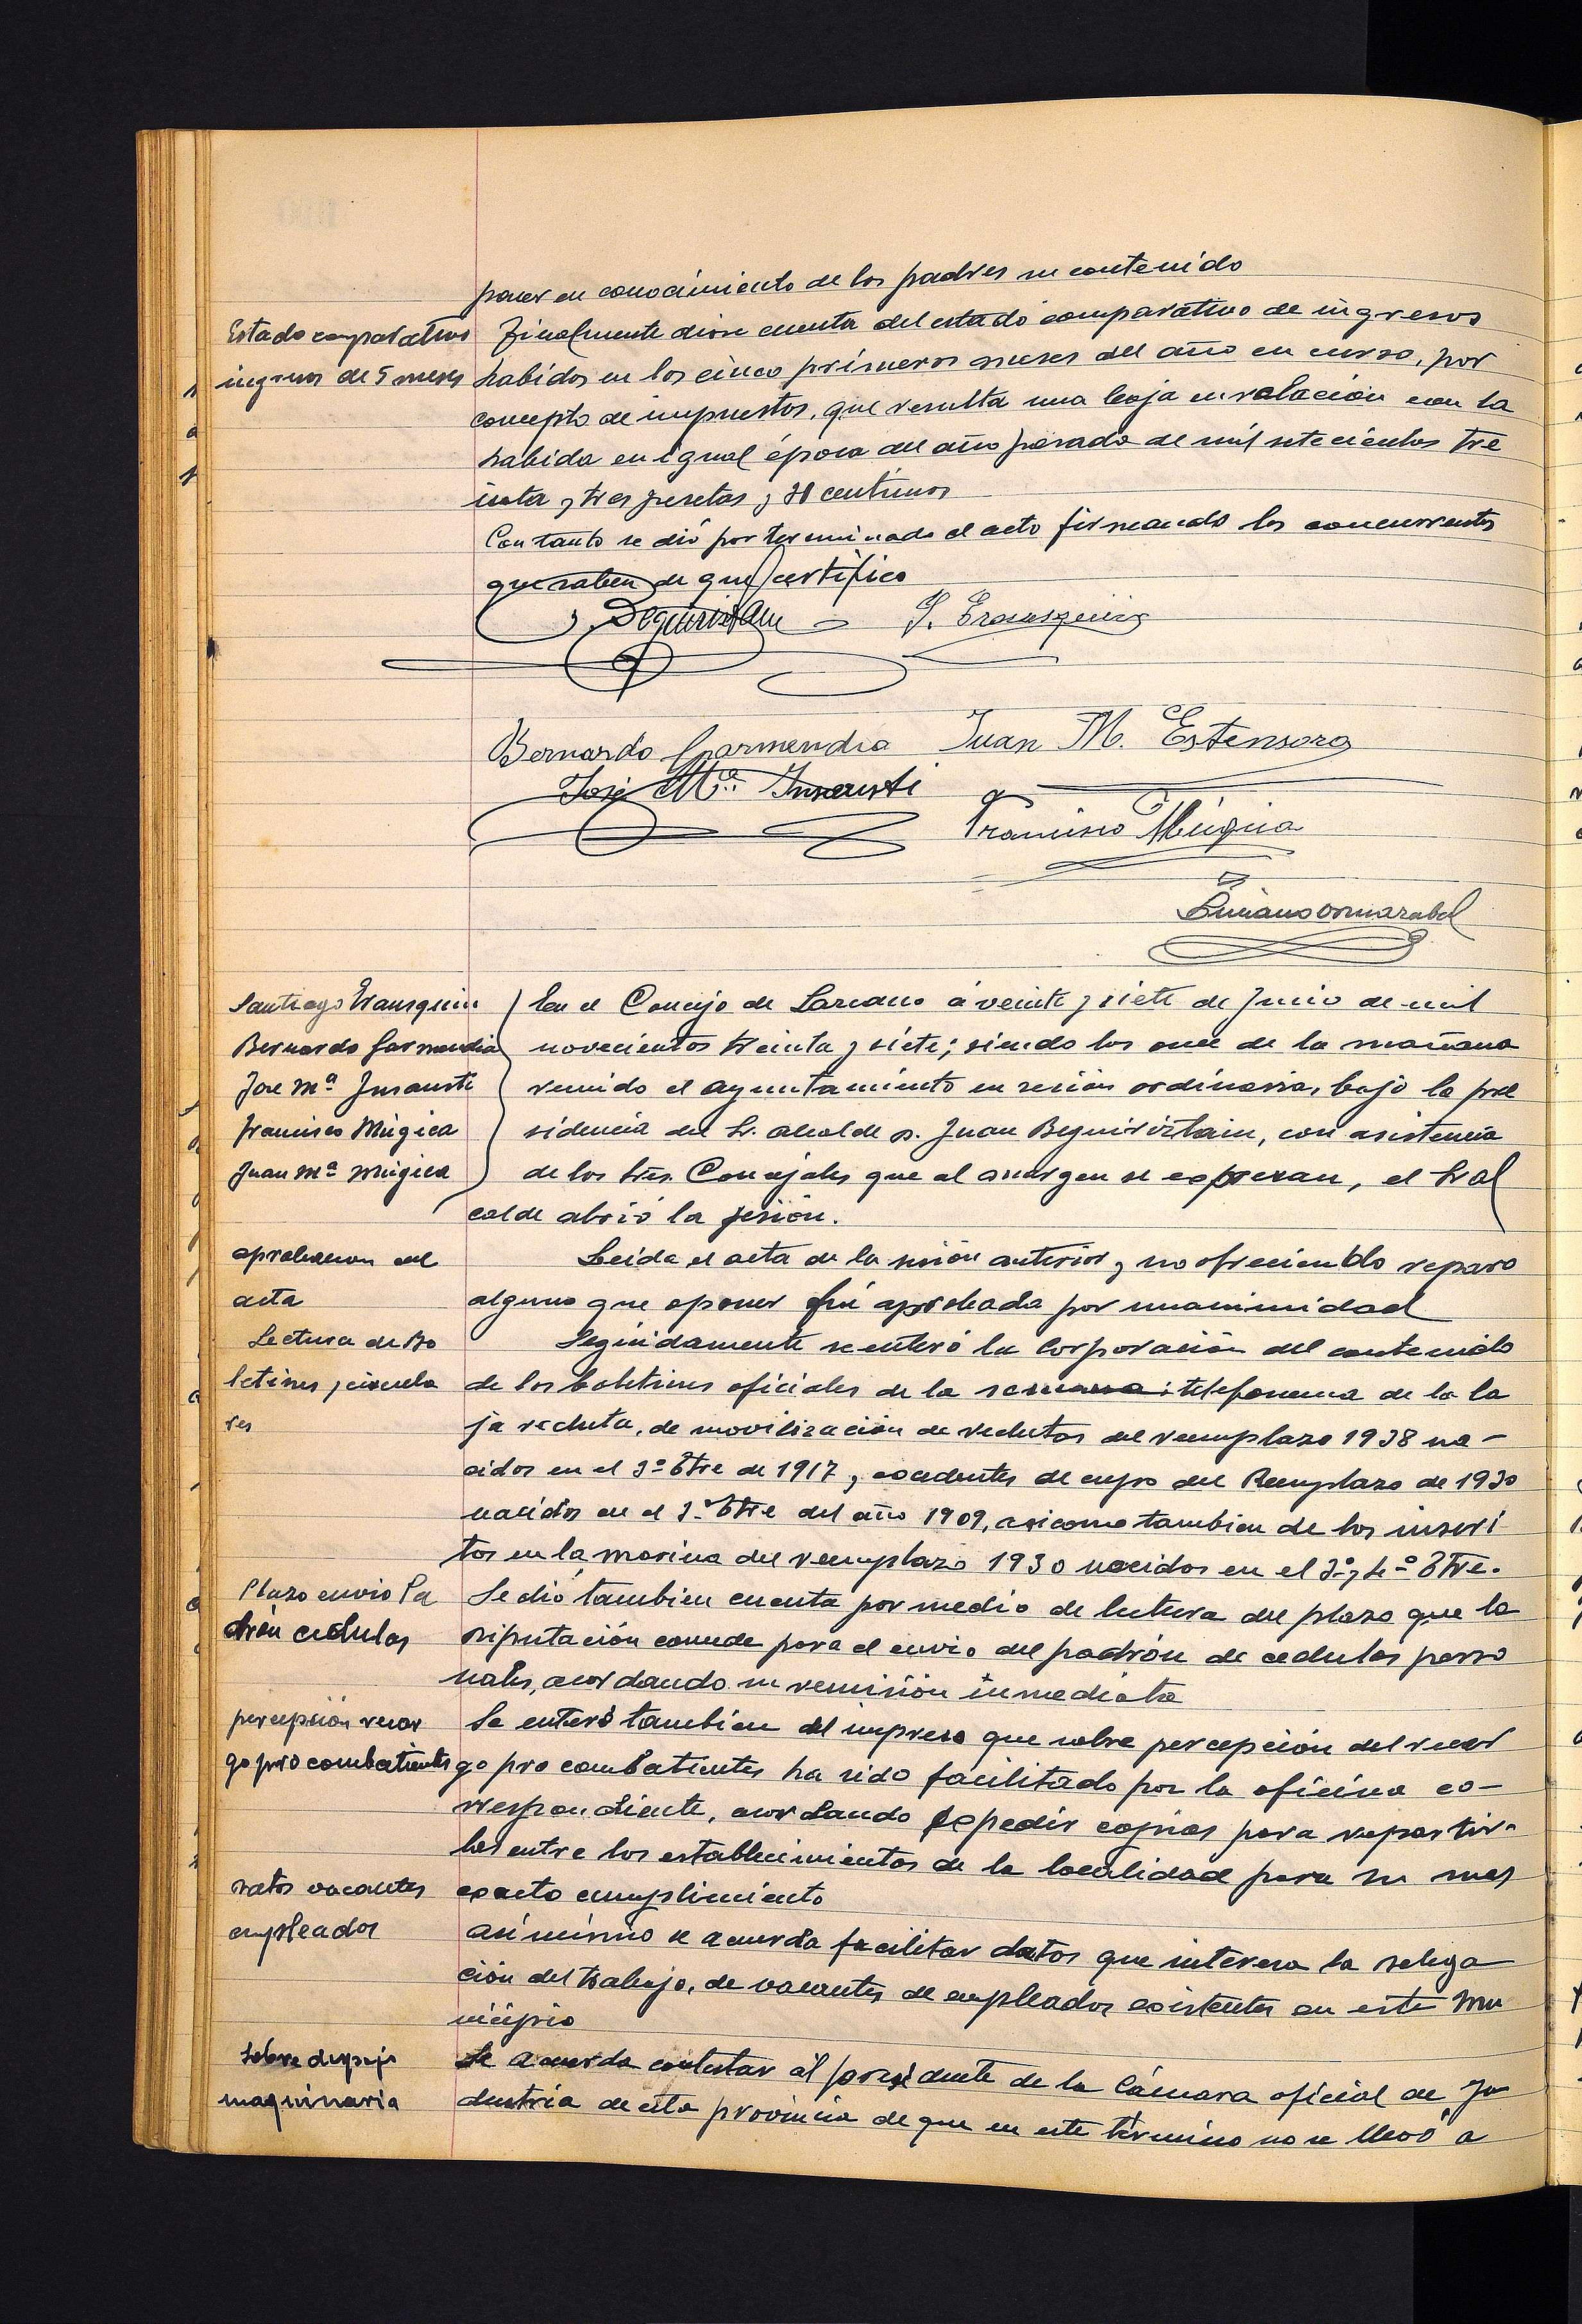 poner en conocimiento de los padres su contenido
Estado comparativo
ingresos de 5 meses
Finalmente dióse cuenta del estado comparativo de ingresos
habidos en los cinco primeros meses del año en curso, por
concepto de impuestos, que resulta una baja en relación con la
habida en igual época del año pasado de mil setecientos tre
inta y tres pesetas y 38 centimos
Con tanto se dió por terminado el acto firmando los concurrentes
que saben de que certifico
J. Beguiristain
S. Erausquin
Bernardo Garmendia Juan M. Estensoro
José Mª Insausti
Francisco Múgica
Santiago Erausquin
Bernardo Garmendia
Jose Mª Insausti
Francisco Múgica
Juan Mª Múgica
En el Concejo de Lazcano á veinte y siete de Junio de mil
novecientos treinta y siete; siendo las once de la mañana
reunido el ayuntamiento en sesión ordinaria, bajo la pre
sidencia del Sr. alcalde D. Juan Beguiristain, con asistencia
de los Sres. Concejales que al margen se expresan, el Sr al
calde abrió la sesión.
aprobacion del
acta
Leida el acta de la sesión anterior y no ofreciendo reparo
alguno que oponer fué aprobada por unanimidad
Lectura de Bo
letines y circula
res
Seguidamente se enteró la Corporación del contenido
de los boletines oficiales de la semana: telefonema de la Ca
ja recluta, de movilización de reclutas del reemplazo 1938 na-
cidos en el 3º Btre de 1917 y excedentes de cupo del Reemplazo de 1930
nacidos en el Btre del año 1909, asicomo tambien de los inscri
tos en la marina del reemplazo 1930 nacidos en el 3º y 4º Btre.
Plazo envio Pa
drón cédulas
Se dió tambien cuenta por medio de lectura del plazo que la
Diputación concede para el envio del padrón de cedulas perso
nales, acordando su remisión inmediata
percepción recar
go pro combatientes
Se enteró tambien del impreso que sobre percepción del recar
go pro combatientes ha sido facilitado por la oficina co-
rrespondiente, acordando expedir copias para repartir-
las entre los establecimientos de la localidad para su mas
exacto cumplimiento
Datos vacantes
empleados
asimismo se acuerda facilitar datos que interesa la Delega
ción del trabajo, de vacantes de empleados existentes en este Mu
nicipio
Sobre despojo
maquinaria
Se acuerda contestar al presidente de la Cámara oficial de In
dustria de esta provincia de que en este término no se llevó a